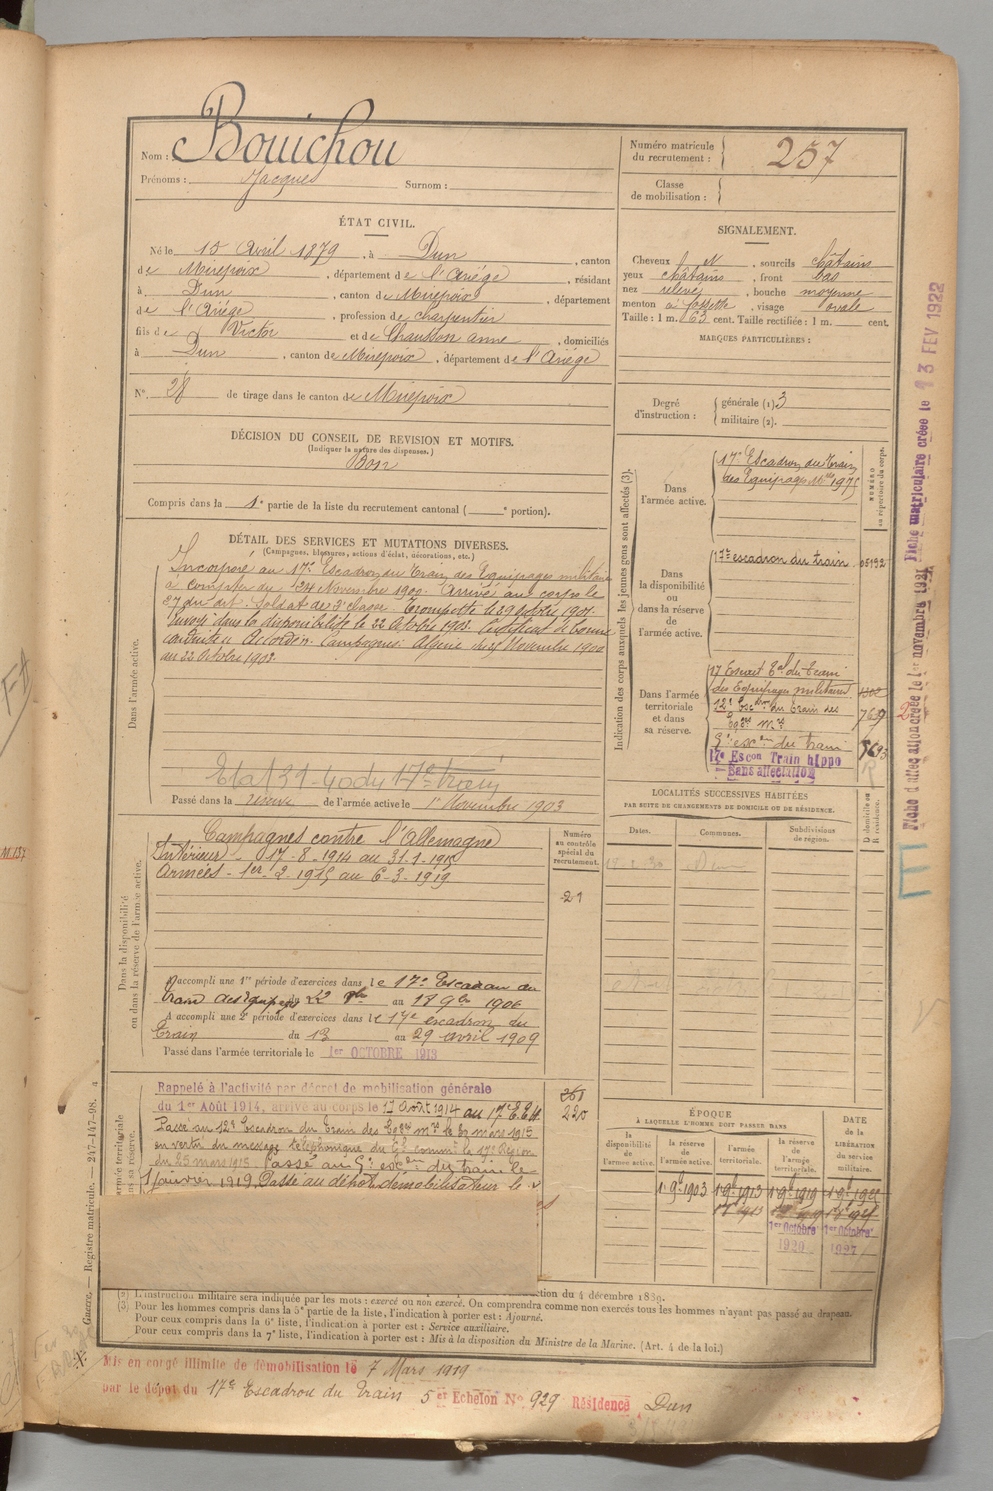 Nom : Bouichou
Prénoms : Jacques Surnom :
Numéro matricule du recrutement : 257
Classe de mobilisation :
ÉTAT CIVIL.
Né le 15 Avril 1879, à Dun, canton
de Mirepoix, département de l'Ariège, résidant
à Dun, canton de Mirepoix, département
de l'Ariège, profession de charpentier
fils de Victor et de Chausson anne, domiciliés
à Dun, canton de Mirepoix, département de l'Ariège
N° 28 de tirage dans le canton de Mirepoix
SIGNALEMENT.
Cheveux N, sourcils châtains
yeux châtains, front bas
nez relevé, bouche moyenne
menton à fossette, visage ovale
Taille : 1 m. 63 cent. Taille rectifiée : 1 m. cent.
MARQUES PARTICULIÈRES :
Degré d'instruction : générale (1) 3
militaire (2).
DÉCISION DU CONSEIL DE REVISION ET MOTIFS.
(Indiquer la nature des dispenses.)
Bon
Compris dans la 1e partie de la liste du recrutement cantonal ( e portion).
DÉTAIL DES SERVICES ET MUTATIONS DIVERSES.
(Campagnes, blessures, actions d'éclat, décorations, etc.)
Dans l'armée active.
Incorporé au 17e Escadron du Train des Equipages militaires
à compter du 24 Novembre 1900. Arrivé au corps le
27 du dit. Soldat de 2e classe. Trompette le 29 7bre 1901.
Envoyé dans la disponibilité le 22 Octobre 1903. Certificat de bonne
conduite "Accordé". Campagnes: Algérie du 25 Novembre 1900
au 22 Octobre 1903.
Etat 31-40 du 17e train
Passé dans la réserve de l'armée active le 1er Novembre 1903
Indication des corps auxquels les jeunes gens sont affectés (3).
NUMÉRO au répertoire du corps.
Dans l'armée active.
17e Escadron du Train
des Equipages Mres 1975
Dans la disponibilité ou dans la réserve de l'armée active.
17e escadron du train 05192
Dans l'armée territoriale et dans sa réserve.
17 Escad. Tal du Train
des Equipages militaires
12e Escdron du Train des
Eqges Mres 7639
9e escon du train 3693
17e Escon Train hippo
Sans affectation
Dans la disponibilité ou dans la réserve de l'armée active.
Campagnes contre l'Allemagne
Intérieur - 17-8-1914 au 31-1-1915
Armées - 1er-2-1915 au 6-3-1919
Numéro au contrôle spécial du recrutement.
21
A accompli une 1re période d'exercices dans le 17e Escadron du
train des équipages du 22 8bre au 18 9bre 1906
A accompli une 2e période d'exercices dans le 17e escadron du
train du 13 au 29 avril 1909
Passé dans l'armée territoriale le 1er OCTOBRE 1913
Rappelé à l'activité par décret de mobilisation générale
du 1er Août 1914, arrivé au corps le 17 Août 1914 au 17e E.E.M.
Passé au 12e Escadron du Train des Eqges mres le 29 mars 1915
en vertu du message téléphonique du Gal commt la 17e Région
du 25 mars 1915. Passé au 9e escon du train le
1 janvier 1919. Passé au dépôt démobilisateur le
261
220
LOCALITÉS SUCCESSIVES HABITÉES
PAR SUITE DE CHANGEMENTS DE DOMICILE OU DE RÉSIDENCE.
Dates. Communes. Subdivisions de région. D domicile ou R résidence.
ÉPOQUE
À LAQUELLE L'HOMME DOIT PASSER DANS
la disponibilité de l'armée active. la réserve de l'armée active. l'armée territoriale. la réserve de l'armée territoriale. DATE de la LIBÉRATION du service militaire.
1-9-1903 1-9-1913 1-9-1919 1-9-1925
1er Octobre 1920 1er Octobre 1927
l'instruction du 4 décembre 1889.
(2) L'instruction militaire sera indiquée par les mots : exercé ou non exercé. On comprendra comme non exercés tous les hommes n'ayant pas passé au drapeau.
(3) Pour les hommes compris dans la 5e partie de la liste, l'indication à porter est : Ajourné.
Pour ceux compris dans la 6e liste, l'indication à porter est : Service auxiliaire.
Pour ceux compris dans la 7e liste, l'indication à porter est : Mis à la disposition du Ministre de la Marine. (Art. 4 de la loi.)
Mis en congé illimité de démobilisation le 7 Mars 1919
par le dépôt du 17e Escadron du Train 5 et Echelon N° 929 Résidence Dun
Guerre. — Registre matricule. — 247-147-98.
Fiche d'affectation créée le 1er novembre 1921 Fiche matriculaire créée le 13 FEV 1922
M.137